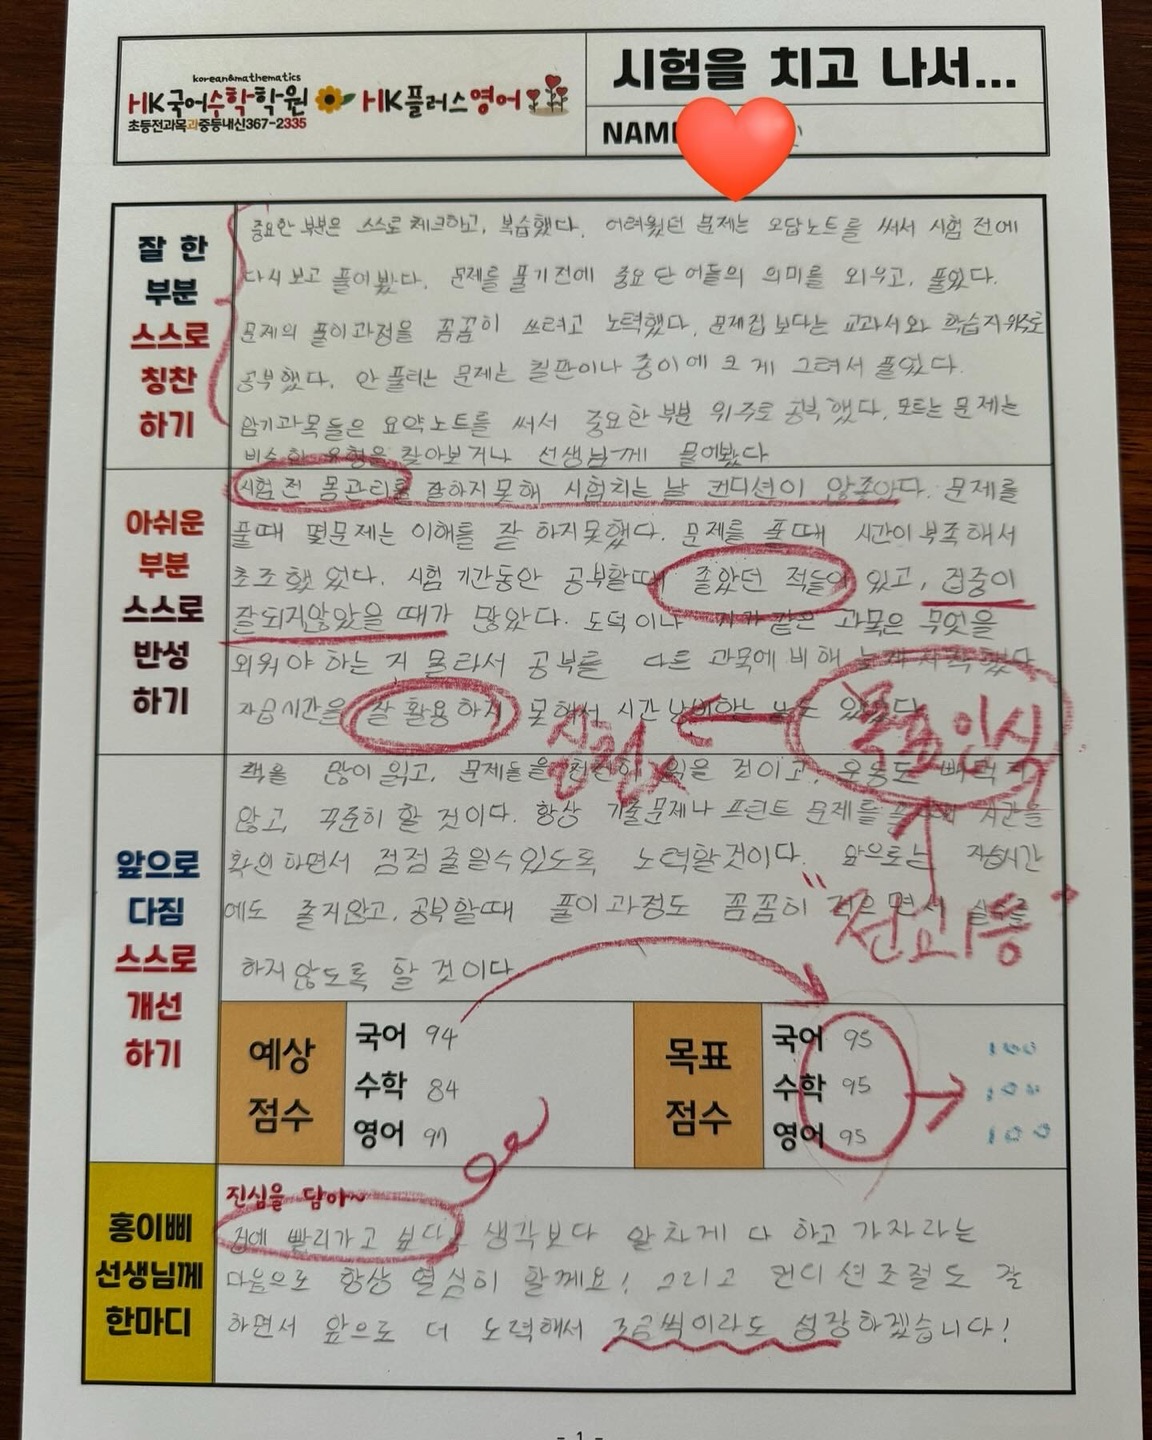 korean&mathematics
HK국어수학학원 HK플러스영어
초등전과목과중등내신367-2335
시험을 치고 나서...
NAM
잘 한
부분
스스로
칭찬
하기
중요한 부분은 스스로 체크하고, 복습했다. 어려웠던 문제는 오답노트를 써서 시험 전에
다시 보고 풀어봤다. 문제를 풀기전에 중요 단어들의 의미를 외우고, 풀었다.
문제의 풀이과정을 꼼꼼히 쓰려고 노력했다. 문제집보다는 교과서와 학습지위주로
공부했다. 안 풀리는 문제는 칠판이나 종이에 크게 그려서 풀었다.
암기과목들은 요약노트를 써서 중요한 부분 위주로 공부했다. 모르는 문제는
비슷한 유형을 찾아보거나 선생님께 물어봤다
아쉬운
부분
스스로
반성
하기
시험 전 몸관리를 잘하지못해 시험치는 날 컨디션이 않좋았다. 문제를
풀때 몇문제는 이해를 잘 하지못했다. 문제를 풀때 시간이 부족해서
초조했었다. 시험 기간동안 공부할때 졸았던 적들이 있고, 집중이
잘되지않았을 때가 많았다. 도덕이나 같은 과목은 무엇을
외워야 하는 지 몰라서 공부를 다른 과목에 비해 늦게 시작했다
자습시간을 잘 활용하지 못해서 시간 낭비하는 날도 있었다
목표인식
실천
앞으로
다짐
스스로
개선
하기
책을 많이 읽고, 문제들을 천천히 읽을 것이고, 운동도 빼먹지
않고, 꾸준히 할 것이다. 항상 기출문제나 프린트 문제를 시간을
확인하면서 점점 줄일수있도록 노력할것이다. 앞으로는 자습시간
에도 졸지않고, 공부할때 풀이과정도 꼼꼼히 적으면서 실수를
"전교1등"
하지않도록 할 것이다
예상
점수
국어 94
수학 84
영어 97
목표
점수
국어 95 100
수학 95 100
영어 95 100
홍이삐
선생님께
한마디
진심을 담아~
집에 빨리가고 싶다 생각보다 알차게 다 하고 가자라는
마음으로 항상 열심히 할께요! 그리고 컨디션조절도 잘
하면서 앞으로 더 노력해서 조금씩이라도 성장하겠습니다!
- 1 -